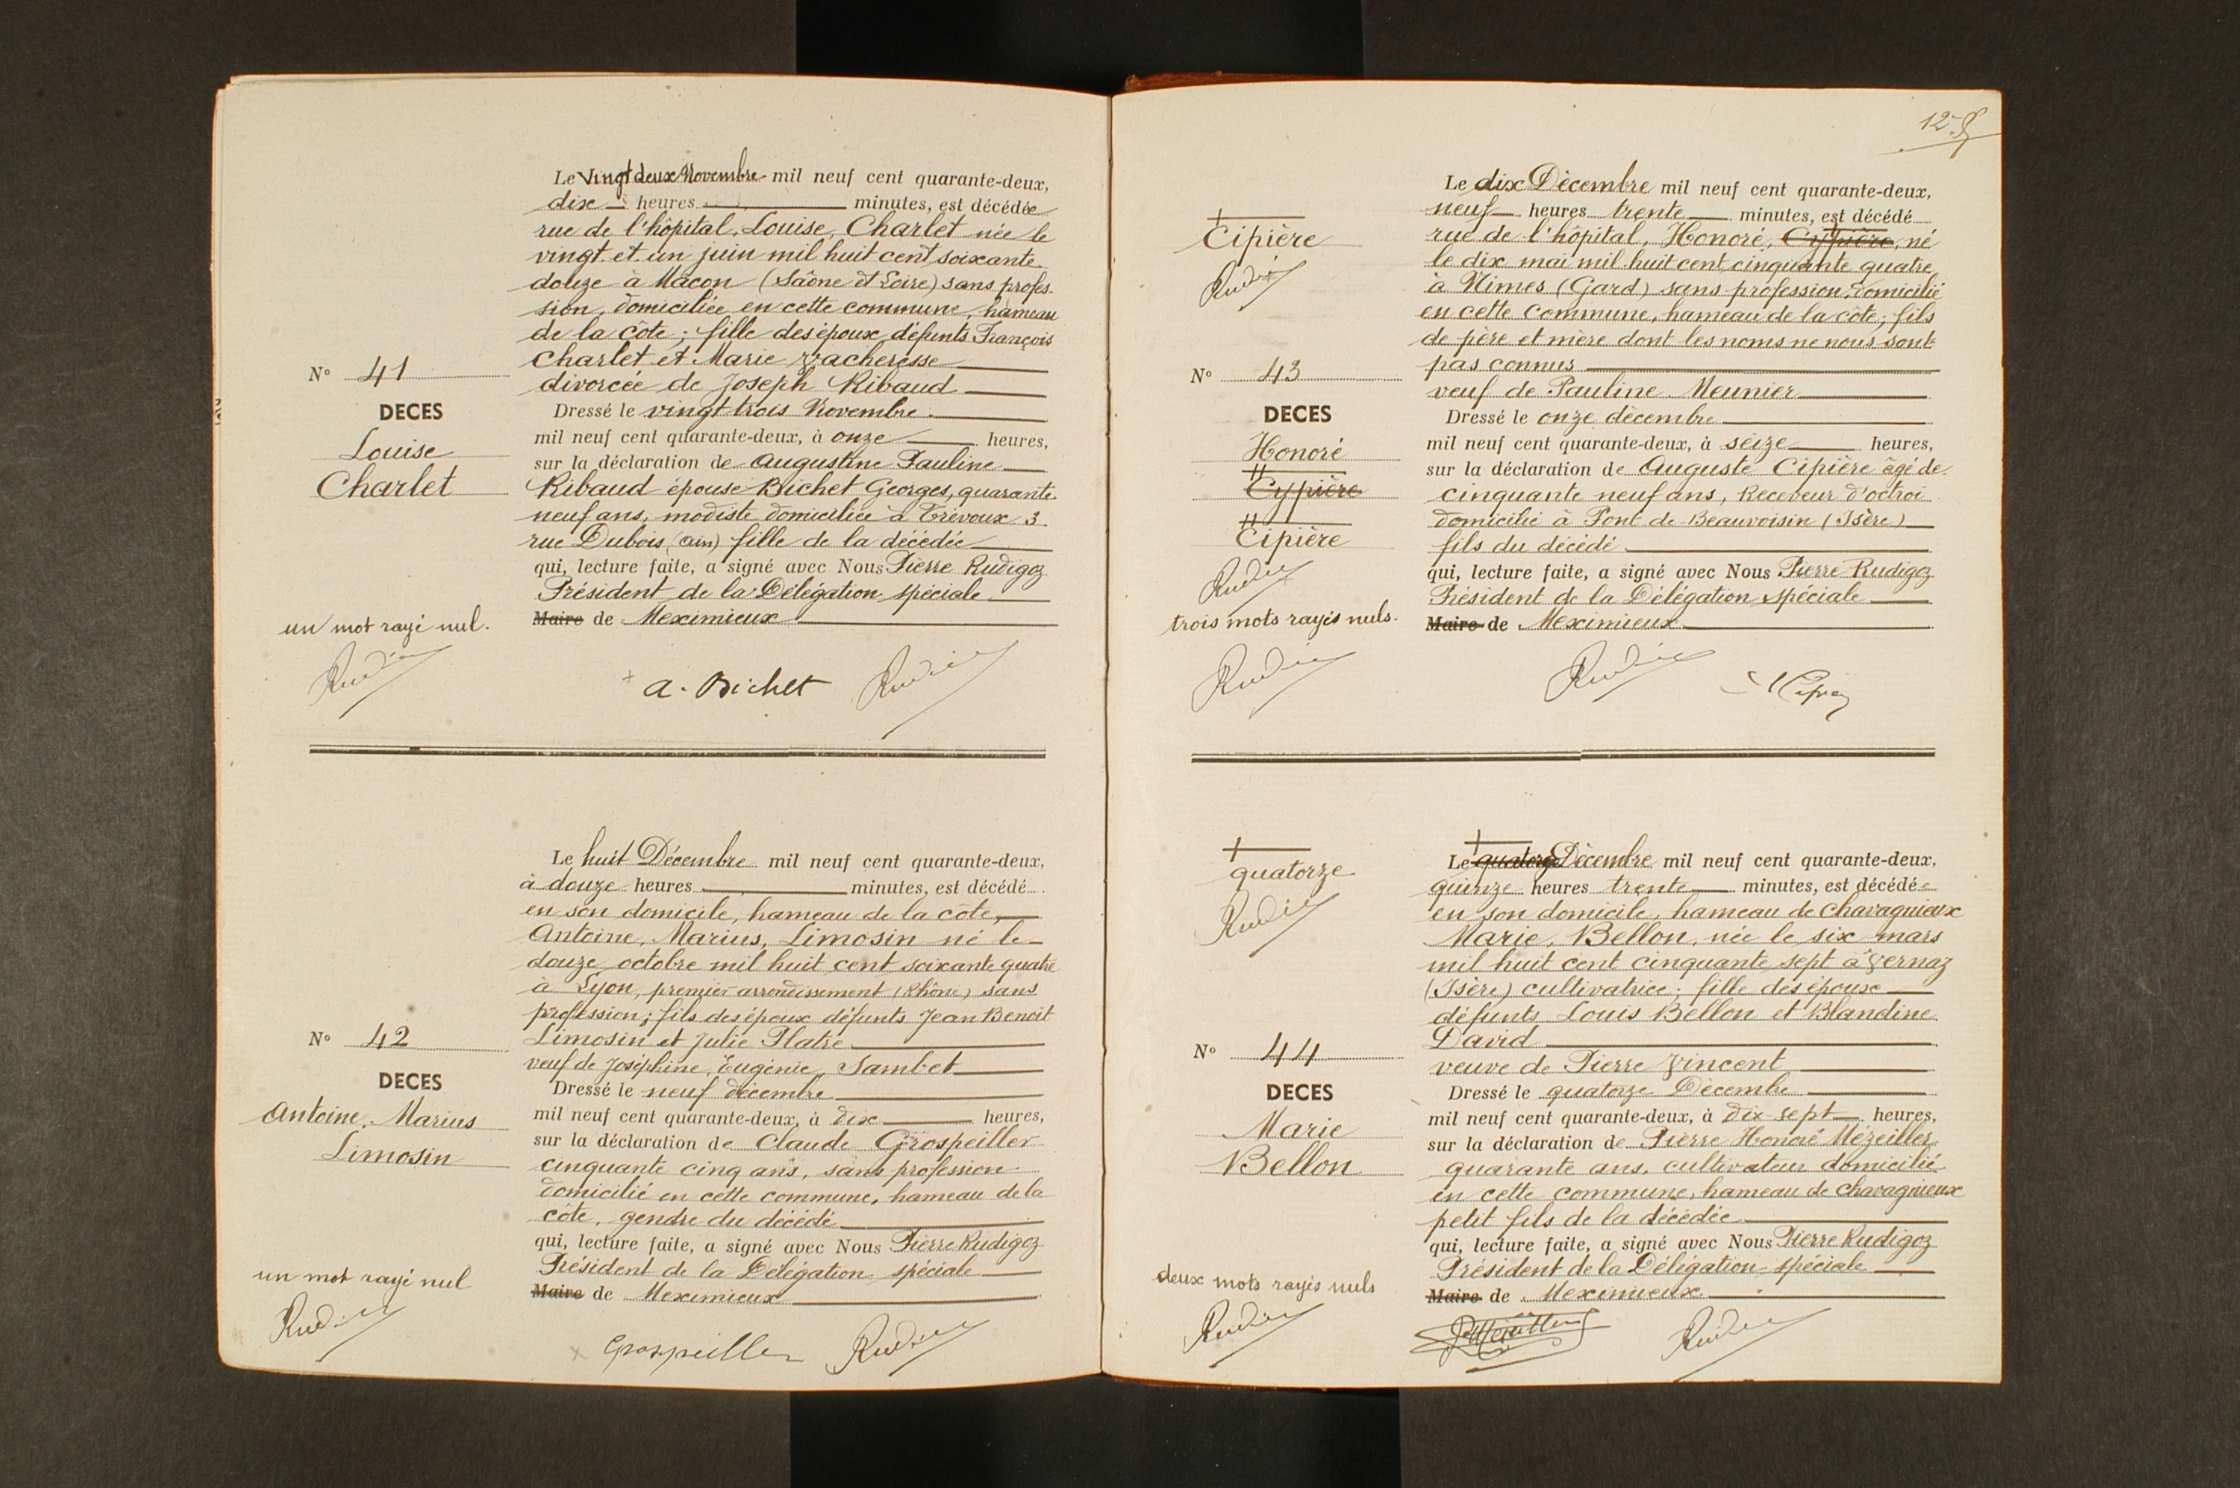 Le vingt deux Novembre mil neuf cent quarante-deux,
dix heures minutes, est décédée
rue de l'hôpital, Louise, Charlet née le
vingt et un juin mil huit cent soixante
douze à Mâcon (Saône et Loire) sans profes-
sion, domiciliée en cette commune, hameau
de la côte ; fille des époux défunts François
Charlet et Marie Vacheresse
divorcée de Joseph Ribaud
Dressé le vingt trois Novembre
mil neuf cent quarante-deux, à onze heures,
sur la déclaration de Augustine Pauline
Ribaud épouse Bichet Georges, quarante
neuf ans, modiste domiciliée à Trévoux 3
rue Dubois (Ain) fille de la décédée
qui, lecture faite, a signé avec Nous Pierre Rudigoz
Président de la Délégation spéciale
Maire de Meximieux
N° 41
DECES
Louise
Charlet
un mot rayé nul.
a. Bichet
Le huit Décembre mil neuf cent quarante-deux,
à douze heures minutes, est décédé
en son domicile, hameau de la côte,
Antoine, Marius, Limosin né le
douze octobre mil huit cent soixante quatre
à Lyon, premier arrondissement (Rhône) sans
profession ; fils des époux défunts Jean Benoit
Limosin et Julie Platre
veuf de Joséphine, Eugénie, Sambet
Dressé le neuf décembre
mil neuf cent quarante-deux, à dix heures,
sur la déclaration de Claude Grospeiller
cinquante cinq ans, sans profession
domicilié en cette commune, hameau de la
côte, gendre du décédé
qui, lecture faite, a signé avec Nous Pierre Rudigoz
Président de la Délégation spéciale
Maire de Meximieux
N° 42
DECES
Antoine, Marius
Limosin
un mot rayé nul
Grospeiller
12
Le dix Décembre mil neuf cent quarante-deux,
neuf heures trente minutes, est décédé
rue de l'hôpital, Honoré, Cypière, né
le dix mai mil huit cent cinquante quatre
à Nimes (Gard) sans profession, domicilié
en cette commune, hameau de la côte ; fils
de père et mère dont les noms ne nous sont
pas connus
veuf de Pauline Meunier
Dressé le onze décembre
mil neuf cent quarante-deux, à seize heures,
sur la déclaration de Auguste Cipière âgé de
cinquante neuf ans, Receveur d'octroi
domicilié à Pont de Beauvoisin (Isère)
fils du décédé
qui, lecture faite, a signé avec Nous Pierre Rudigoz
Président de la Délégation spéciale
Maire de Meximieux
Cipière
N° 43
DECES
Honoré
Cypière
Cipière
trois mots rayés nuls.
Le quatorze Décembre mil neuf cent quarante-deux,
quinze heures trente minutes, est décédée
en son domicile, hameau de Chavagnieux
Marie, Bellon, née le six mars
mil huit cent cinquante sept à Vernaz
(Isère) cultivatrice ; fille des époux
défunts Louis Bellon et Blandine
David
veuve de Pierre Vincent
Dressé le quatorze Décembre
mil neuf cent quarante-deux, à dix-sept heures,
sur la déclaration de Pierre Honoré Mézeiller
quarante ans, cultivateur domicilié
en cette commune, hameau de Chavagnieux
petit fils de la décédée
qui, lecture faite, a signé avec Nous Pierre Rudigoz
Président de la Délégation spéciale
Maire de Meximieux
quatorze
N° 44
DECES
Marie
Bellon
deux mots rayés nuls